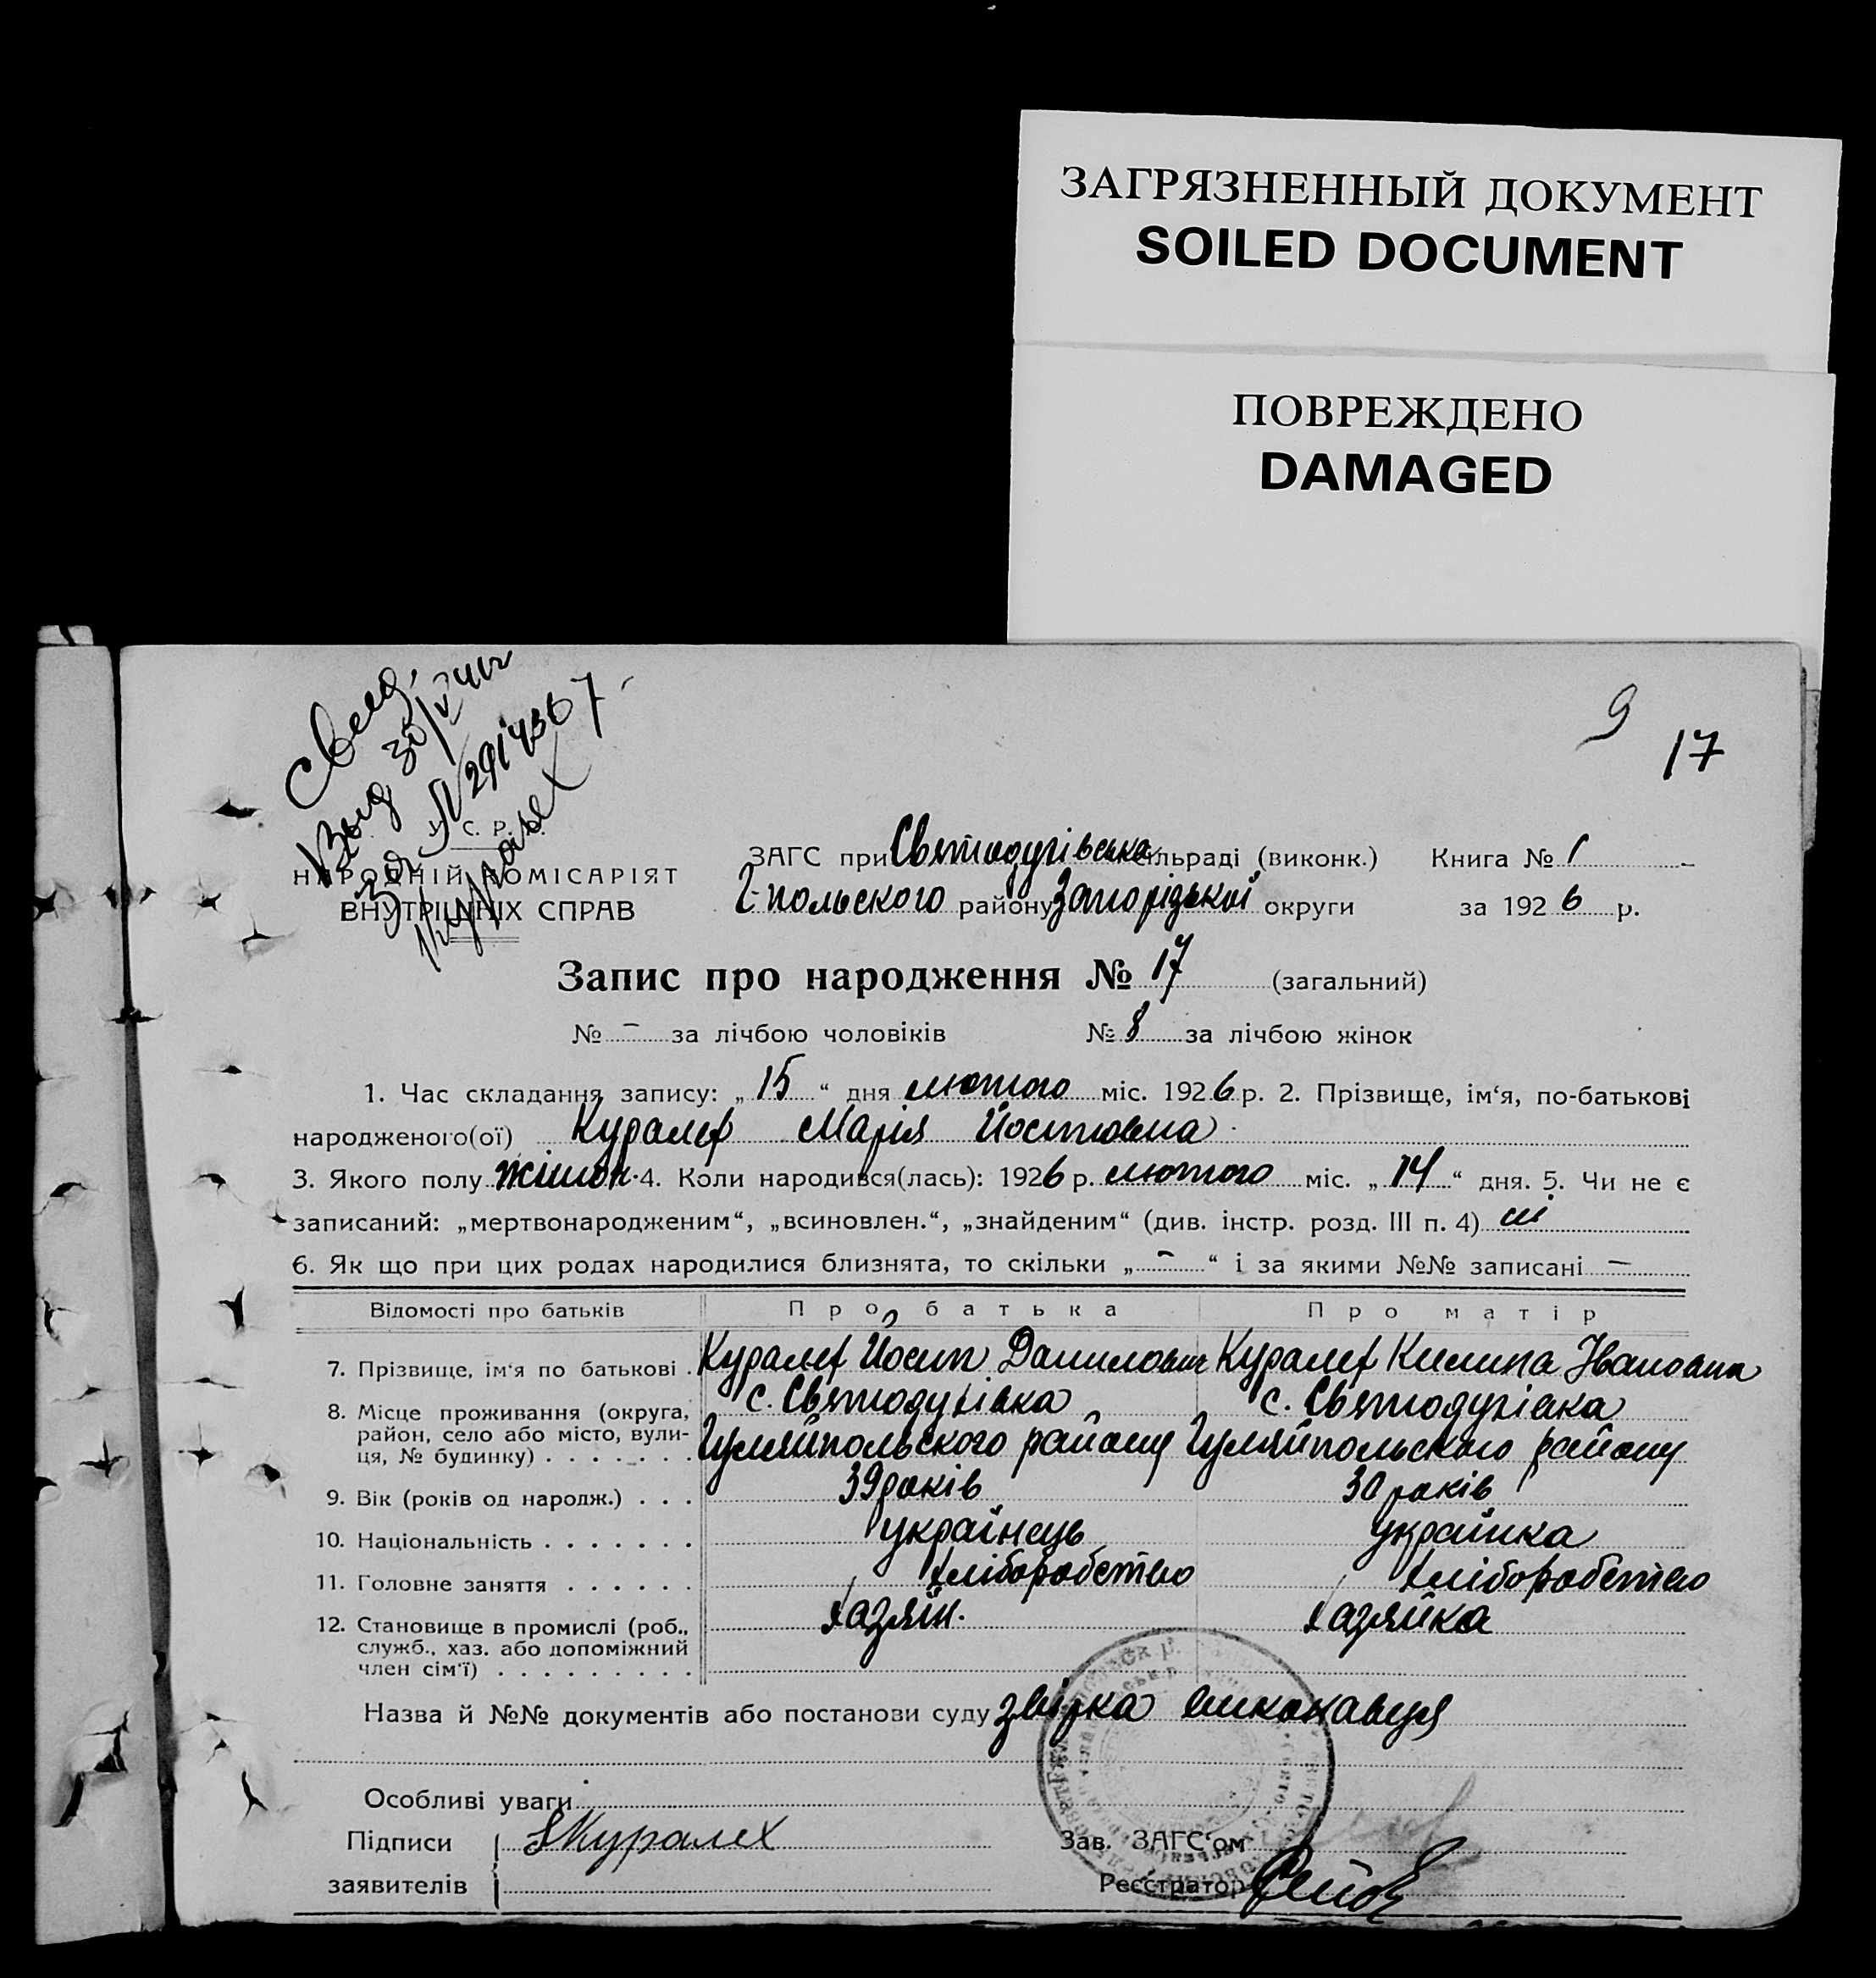 ЗАГРЯЗНЕННЫЙ ДОКУМЕНТ
SOILED DOCUMENT
ПОВРЕЖДЕНО
DAMAGED
9
17
Свед.
Выд 30/V
Куралех
У. С. Р. Р.
НАРОДНІЙ КОМІСАРІЯТ
ВНУТРІШНІХ СПРАВ
ЗАГС при Святодухівська сільраді (виконк.) Книга № 1
Г-польского району Запорізької округи за 1926 р.
Запис про народження № 17 (загальний)
№ - за лічбою чоловіків № 8 за лічбою жінок
1. Час складання запису: „15“ дня лютого міс. 1926 р. 2. Прізвище, ім‘я, по-батькові
народженого(ої) Куралех Марія Йосиповна
3. Якого полу жіноч. 4. Коли народився(лась): 1926 р. лютого міс. „14“ дня. 5. Чи не є
записаний: „мертвонародженим“, „всиновлен.“, „знайденим“ (див. інстр. розд. III п. 4) ні
6. Як що при цих родах народилися близнята, то скільки „-“ і за якими №№ записані -
Відомості про батьків Про батька Про матір
7. Прізвище, ім‘я по батькові . Куралех Йосип Данилович Куралех Килина Івановна
8. Місце проживання (округа, с. Святодухівка с. Святодухівка
район, село або місто, вули-
ця, № будинку) . . . . . . . Гуляйпольского району Гуляйпольского району
9. Вік (років од народж.) . . . 39 років 30 років
10. Національність . . . . . . . українець українка
11. Головне заняття . . . . . . хліборобство хліборобство
12. Становище в промислі (роб., хазяїн. хазяйка
служб., хаз. або допоміжний
член сім‘ї) . . . . . . . . .
Назва й №№ документів або постанови суду звірка виконавця
Особливі уваги
Підписи Куралех Зав. ЗАГС‘ом
заявителів Реєстратор